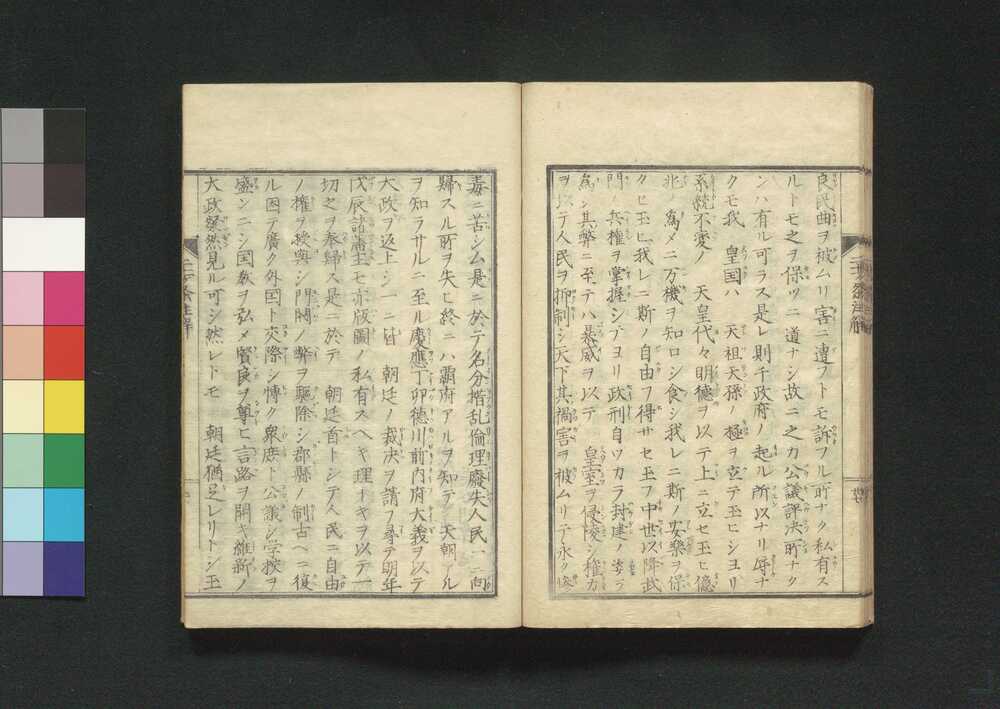 良民曲ヲ被ムリ害ニ遭フトモ訴フル所ナク私有ス
ルトモ之ヲ保ツニ道ナシ故ニ之カ公議評決所ナク
ンハ有ル可ラス是レ則チ政府ノ起ル所以ナリ辱ナ
クモ我　皇国ハ　天祖天孫ノ極ヲ立テ玉ヒシヨリ
系統不変ノ　天皇代々明徳ヲ以テ上ニ立セ玉ヒ億
兆ノ為メニ万機ヲ知ロシ食シ我レニ斯ノ安楽ヲ保
タセ玉ヒ我レニ斯ノ自由ヲ得サセ玉フ中世以降武
門ノ兵権ヲ掌握シテヨリ政刑自ツカラ封建ノ姿ヲ
為シ其弊ニ至テハ暴威ヲ以テ　皇室ヲ侵陵シ権力
ヲ以テ人民ヲ抑制シ天下其禍害ヲ被ムリテ永ク惨
毒ニ苦シム是ニ於テ名分楷乱倫理廃失人民一ニ向
歸スル所ヲ失ヒ終ニハ覇府アルヲ知テ　天朝アル
ヲ知ラサルニ至ル慶應丁卯徳川前内府大義ヲ以テ
大政ヲ返上シ一ニ皆　朝廷ノ裁決ヲ請フ尋テ明年
戊辰諸藩主モ亦版圖ノ私有スヘキ理ナキヲ以テ一
切之ヲ奉歸ス是ニ於テ　朝廷首トシテ人民ニ自由
ノ権ヲ授與シ門閥ノ弊ヲ驅除シ郡縣ノ制古ヘニ復
ル因テ廣ク外国ト交際シ博ク衆庶ト公議シ学校ヲ
盛ンニシ国教ヲ弘メ賢良ヲ尊ヒ言路ヲ開キ維新ノ
大政粲然見ル可シ然レトモ　朝廷猶足レリトシ玉